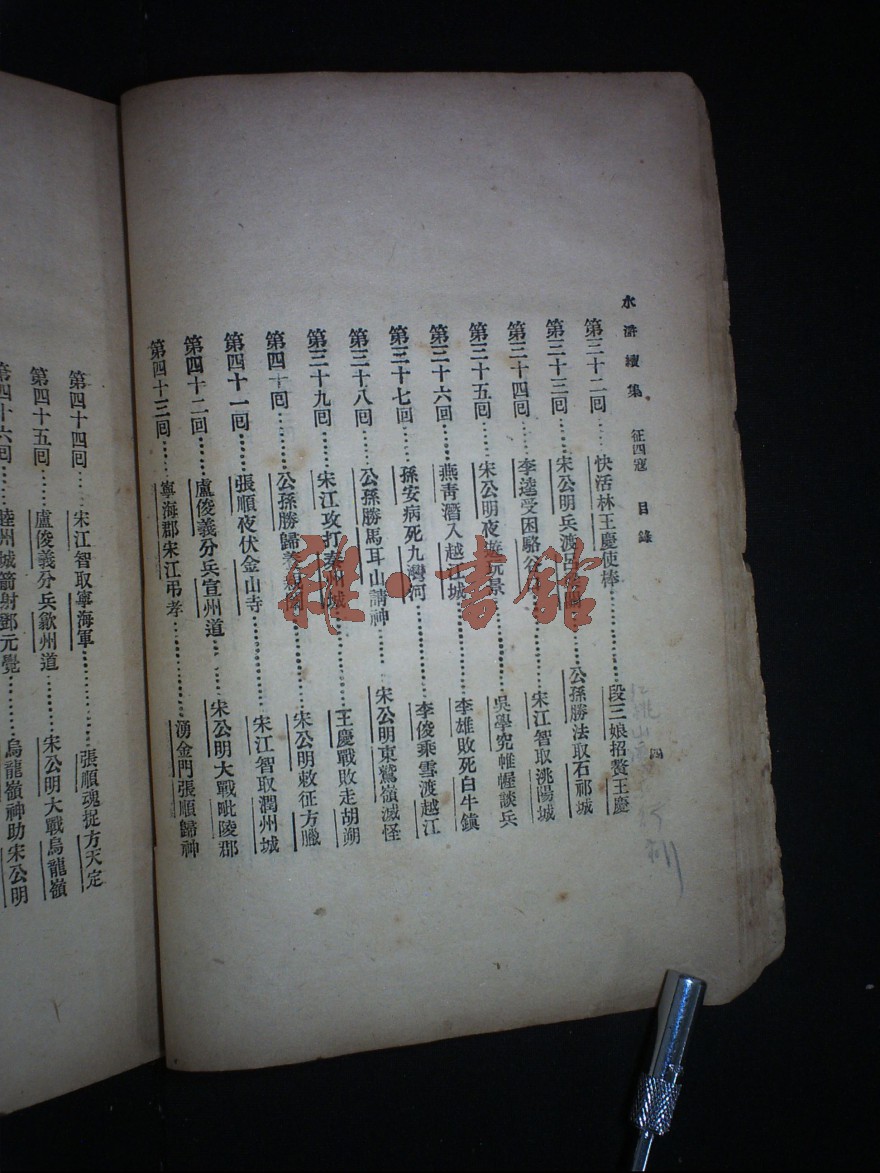 水滸續集 征四寇 目錄 四
第三十二回……快活林王慶使棒……段三娘招贅王慶
第三十三回……宋公明兵渡呂……公孫勝法取石祁城
第三十四回……李逵受困駱谷……宋江智取洮陽城
第三十五回……宋公明夜遊玩景……吳學究帷幄談兵
第三十六回……燕青潛入越江城……李雄敗死白牛鎮
第三十七回……孫安病死九灣河……李俊乘雪渡越江
第三十八回……公孫勝馬耳山請神……宋公明東鷲嶺滅怪
第三十九回……宋江攻打秦州城……王慶戰敗走胡朔
第四十回……公孫勝歸養親……宋公明敕征方臘
第四十一回……張順夜伏金山寺……宋江智取潤州城
第四十二回……盧俊義分兵宣州道……宋公明大戰毗陵郡
第四十三回……寧海郡宋江弔孝……湧金門張順歸神
第四十四回……宋江智取寧海軍……張順魂捉方天定
第四十五回……盧俊義分兵歙州道……宋公明大戰烏龍嶺
第四十六回……睦州城箭射鄧元覺……烏龍嶺神助宋公明
雅·書館